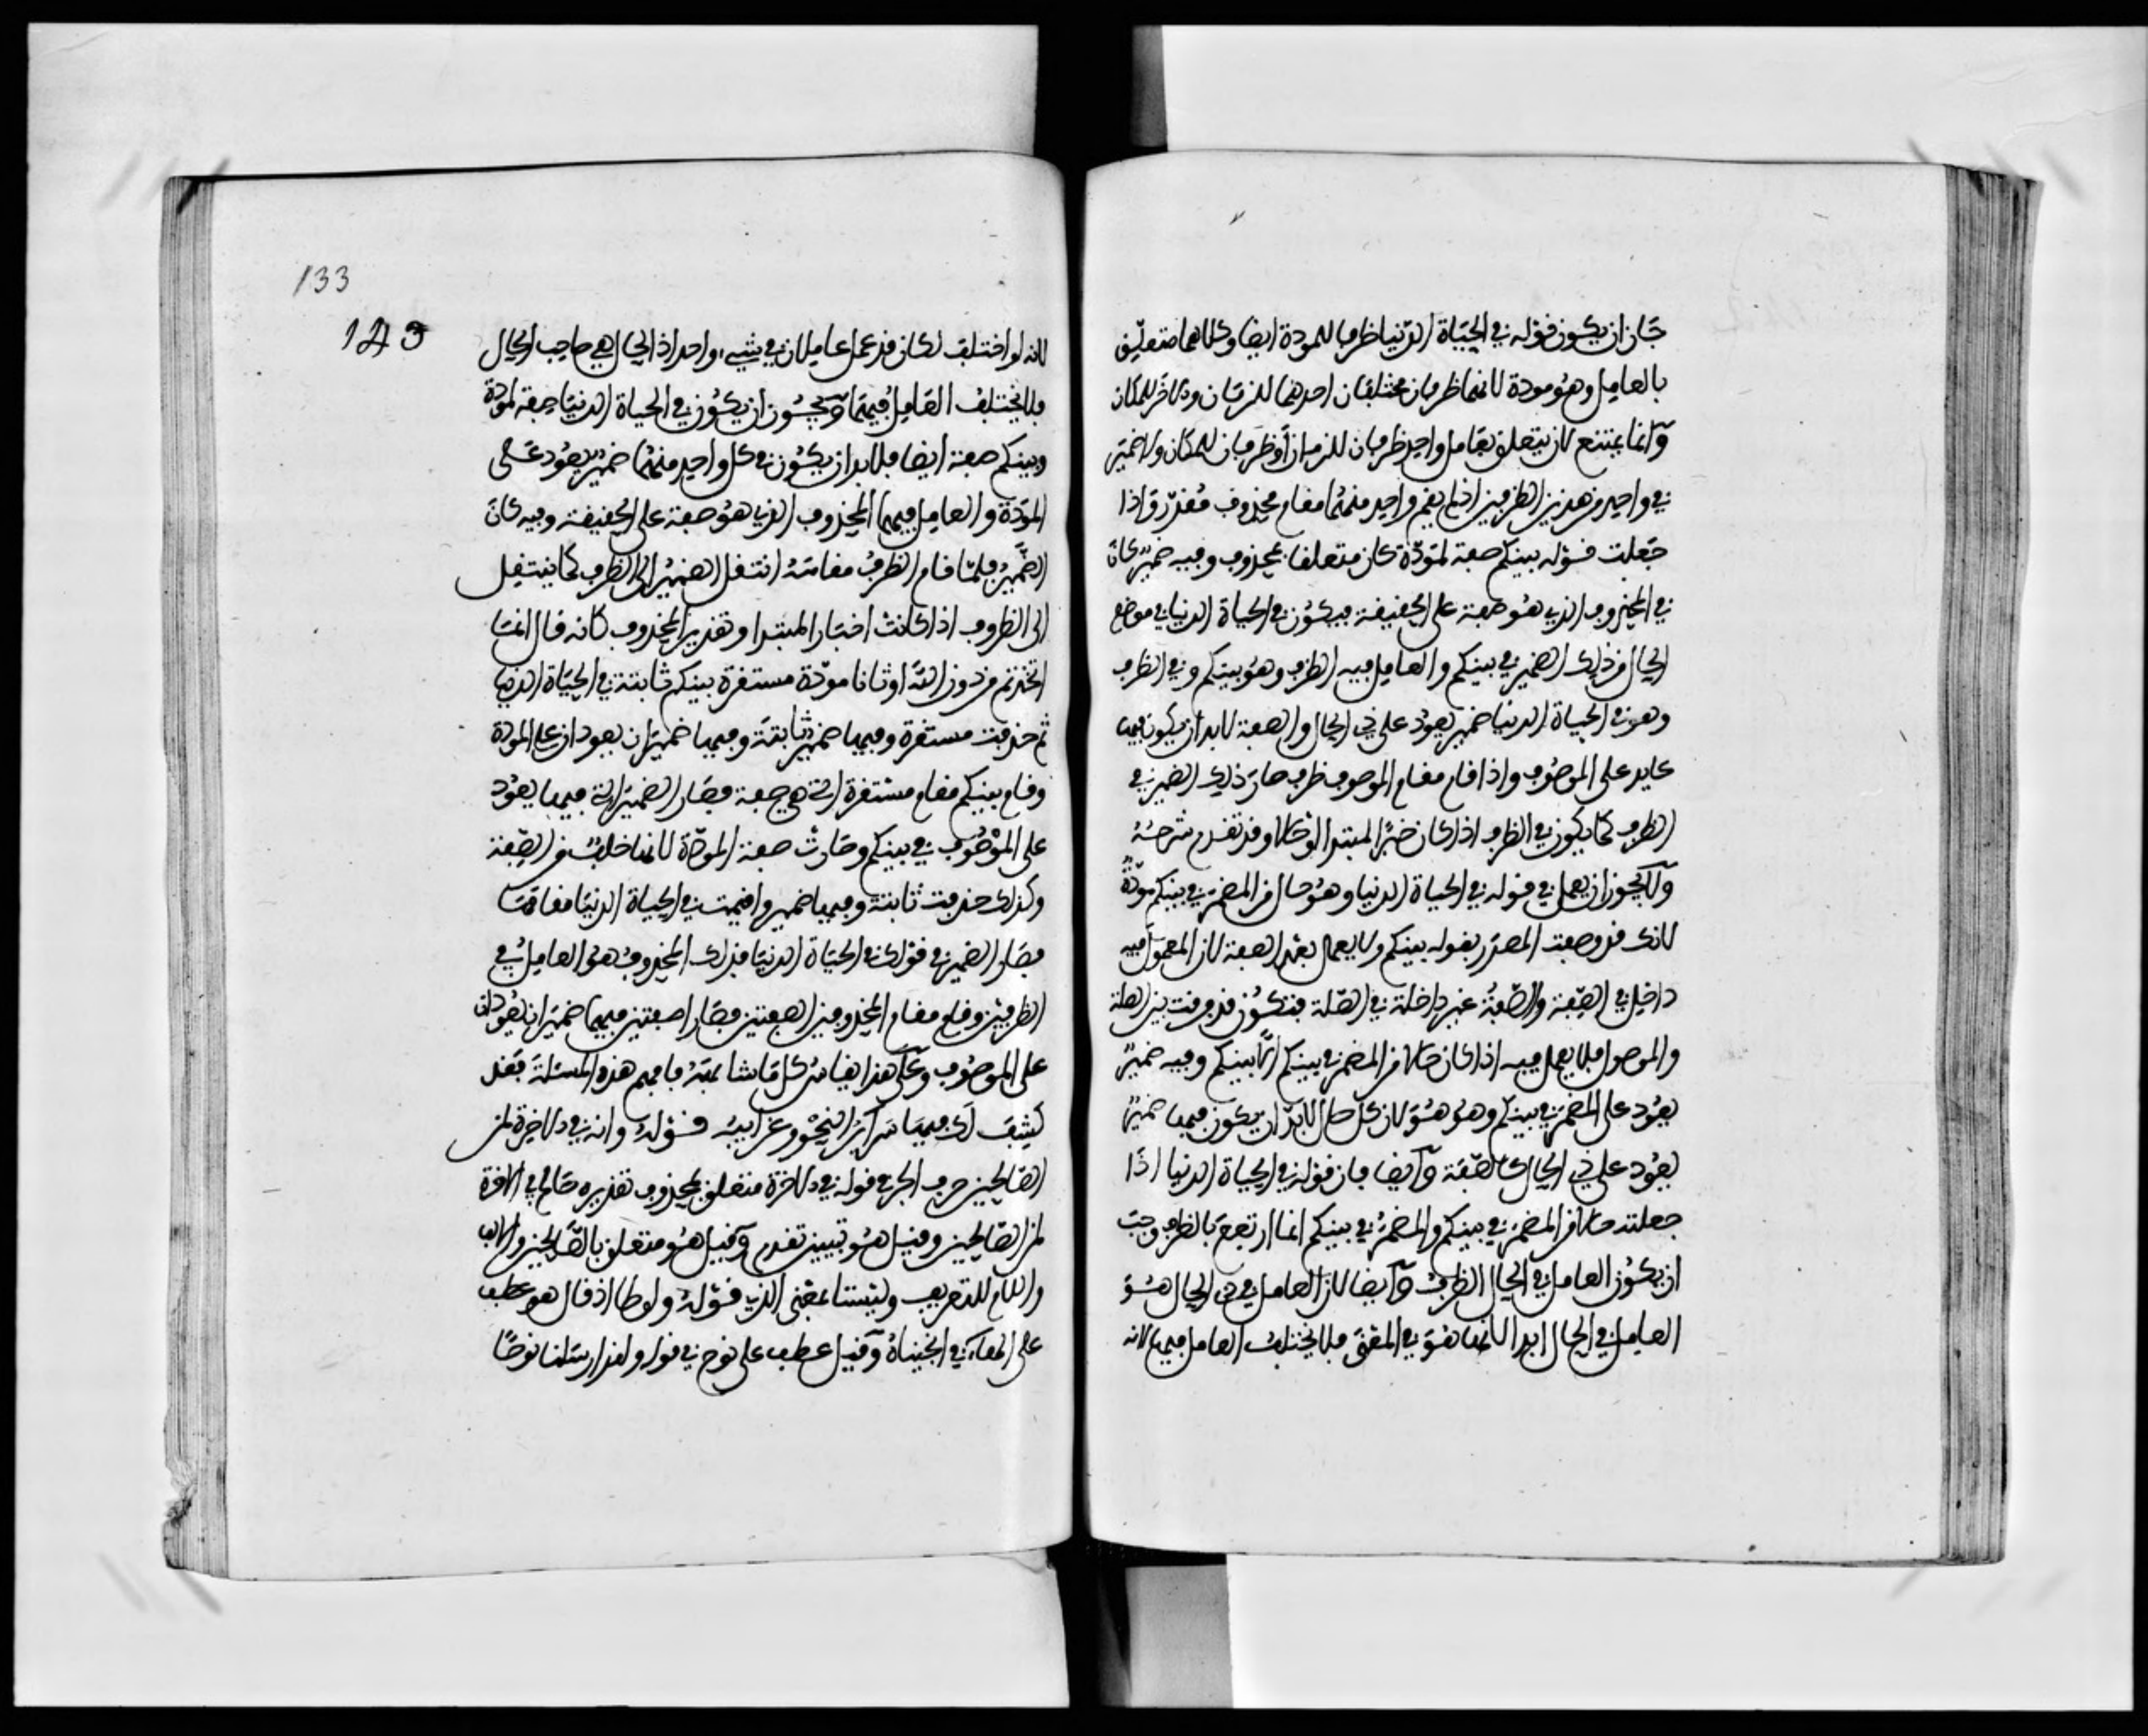 جاز ان يكون قوله في الحياة الدنيا ظرفا للمودة ايضا وكلاهما متعلق
بالعامل وهو مودة لانهما ظرفان مختلفان احدهما للزمان والاخر للمكان
وانما يمتنع ان يتعلق بعامل واحد ظرفان للزمان او ظرفان للمكان ولا ضمير
في واحد من هذين الظرفين اذ لم يقم واحد منهما مقام محذوف مقدر واذا
جعلت قوله بينكم صفة لمودة كان متعلقا بمحذوف وفيه ضمير كان
في المحذوف الذي هو صفة على الحقيقة فيكون في الحياة الدنيا في موضع
الحال من ذلك الضمير في بينكم والعامل فيه الظرف وهو بينكم وفي الظرف
وهو في الحياة الدنيا ضمير يعود على ذي الحال والصفة لابد ان يكون فيها
عايد على الموصوف واذا قام مقام الموصوف ظرف صار ذلك الضمير في
الظرف كما يكون في الظرف اذا كان خبر المبتدا او حالا وقد تقدم شرحه
ولا يجوز ان يعمل في قوله في الحياة الدنيا وهو حال من المضمر في بينكم مودة
لانك قد وصفت المصدر بقوله بينكم ولا يعمل بعد الصفة لان المعمول فيه
داخل في الصفة والصفة غير داخلة في الصلة فتكون قد فرقت بين الصلة
والموصول فلا يعمل فيه اذا كان حالا من المضمر في بينكم لان بينكم وفيه ضمير
يعود على المضمر في بينكم وهو هو لان كل حال لابد ان يكون فيها ضمير
يعود على ذي الحال كالصفة وايضا فان قوله في الحياة الدنيا اذا
جعلته حالا من المضمر في بينكم والمضمر في بينكم انما ارتفع بالظرف وجب
ان يكون العامل في الحال الظرف وايضا لان العامل في ذي الحال هو
العامل في الحال ابدا لانها هو في المعنى فلا يختلف العامل فيهما لانه
133
143
لانه لو اختلف لكان قد عمل عاملان في شيء واحد اذ الحال هي صاحب الحال
فلا يختلف العامل فيهما ويجوز ان يكون في الحياة الدنيا صفة لمودة
وبينكم صفة ايضا فلابد ان يكون في كل واحد منهما ضمير يعود على
المودة والعامل فيهما المحذوف الذي هو صفة على الحقيقة وفيه كان
الضمير فلما قام الظرف مقامه انتقل الضمير الى الظرف كما ينتقل
الى الظروف اذا كانت اخبار المبتدا وتقدير المحذوف كانه قال انما
اتخذتم من دون الله اوثانا مودة مستقرة بينكم ثابتة في الحياة الدنيا
ثم حذفت مستقرة وفيها ضمير ثابتة وفيها ضميران يعودان على المودة
وقام بينكم مقام مستقرة التي هي صفة فصار الضمير الذي فيها يعود
على الموصوف في بينكم وصارت صفة المودة لانها خلف من الصفة
وكذلك حذفت ثابتة وفيها ضمير واقيمت في الحياة الدنيا مقامها
فصار الضمير في قولك في الحياة الدنيا فذلك المحذوف هو العامل في
الظرفين وقام مقام المحذوفين الصفتين فصارا صفتين فيهما ضميران يعودان
على الموصوف وعلى هذا يقاس كل ما شابهه فافهم هذه المسئلة فقد
كشفت لك فيها سرائر النحو وغرايبه قوله وانه في الاخرة لمن
الصالحين حرف الجر في قوله في الاخرة متعلق بمحذوف تقديره صالح في الاخرة
لمن الصالحين وقيل هو تبيين تقدم وقيل هو متعلق بالصالحين والالف
واللام للتعريف وليستا بمعنى الذي قوله ولوطا اذ قال هو عطف
على الهاء في انجيناه وقيل عطف على نوح في قوله ولقد ارسلنا نوحا